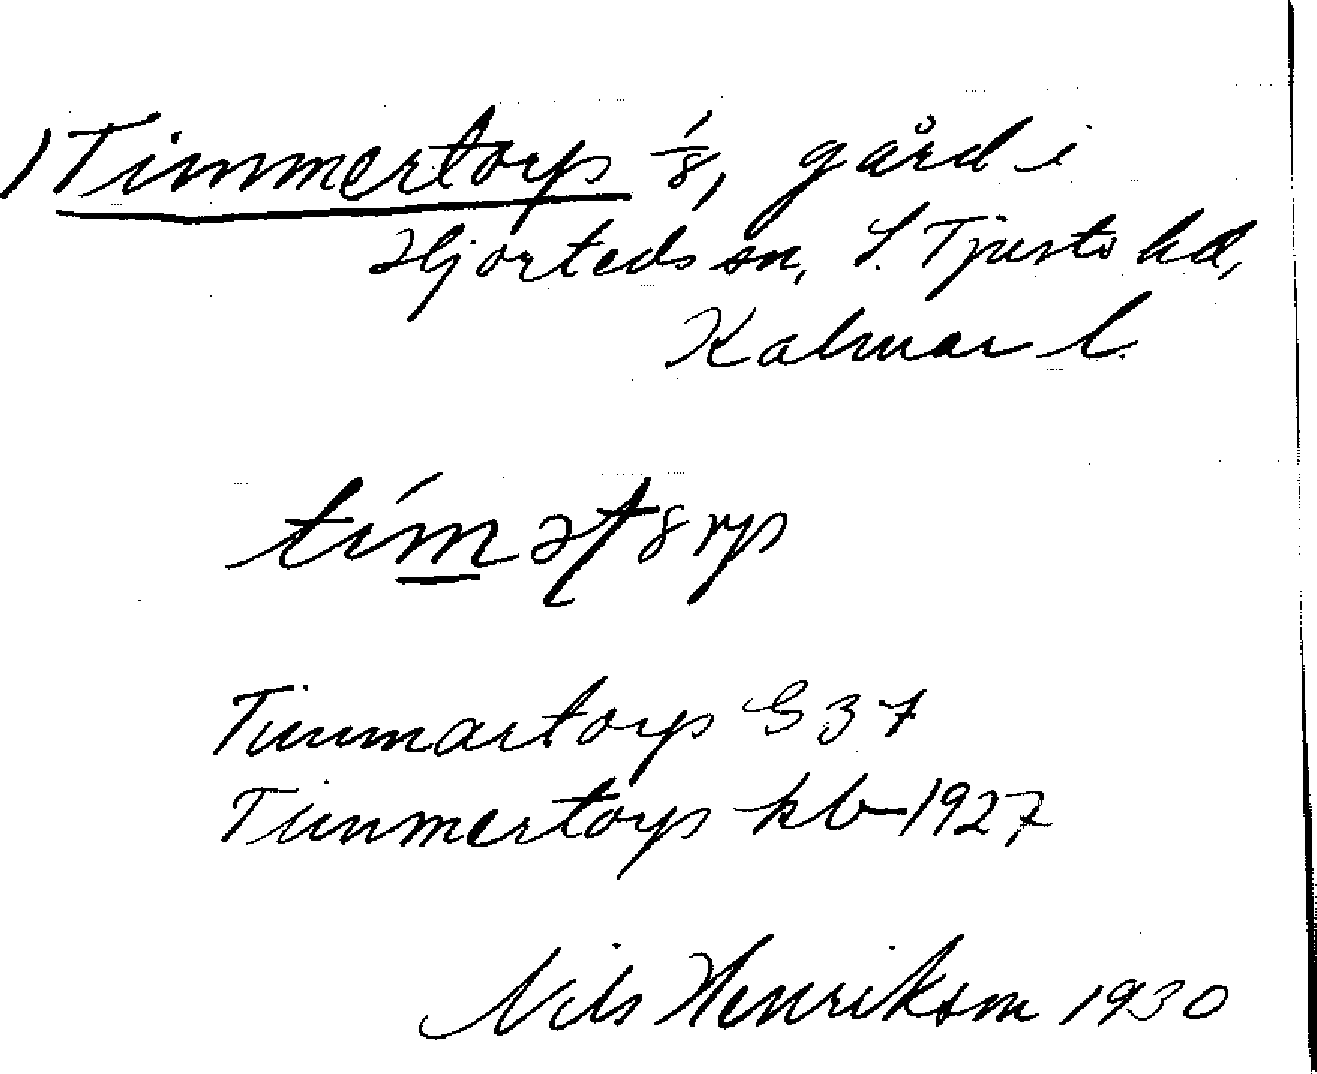 1) Timmertorp 1/8, gård i
Hjorteds sn, S. Tjusts hd,
Kalmar l.
tím̲əʈ8rp
Timmartorp G 37
Timmertorp kb 1927
Nils Henrikson 1930